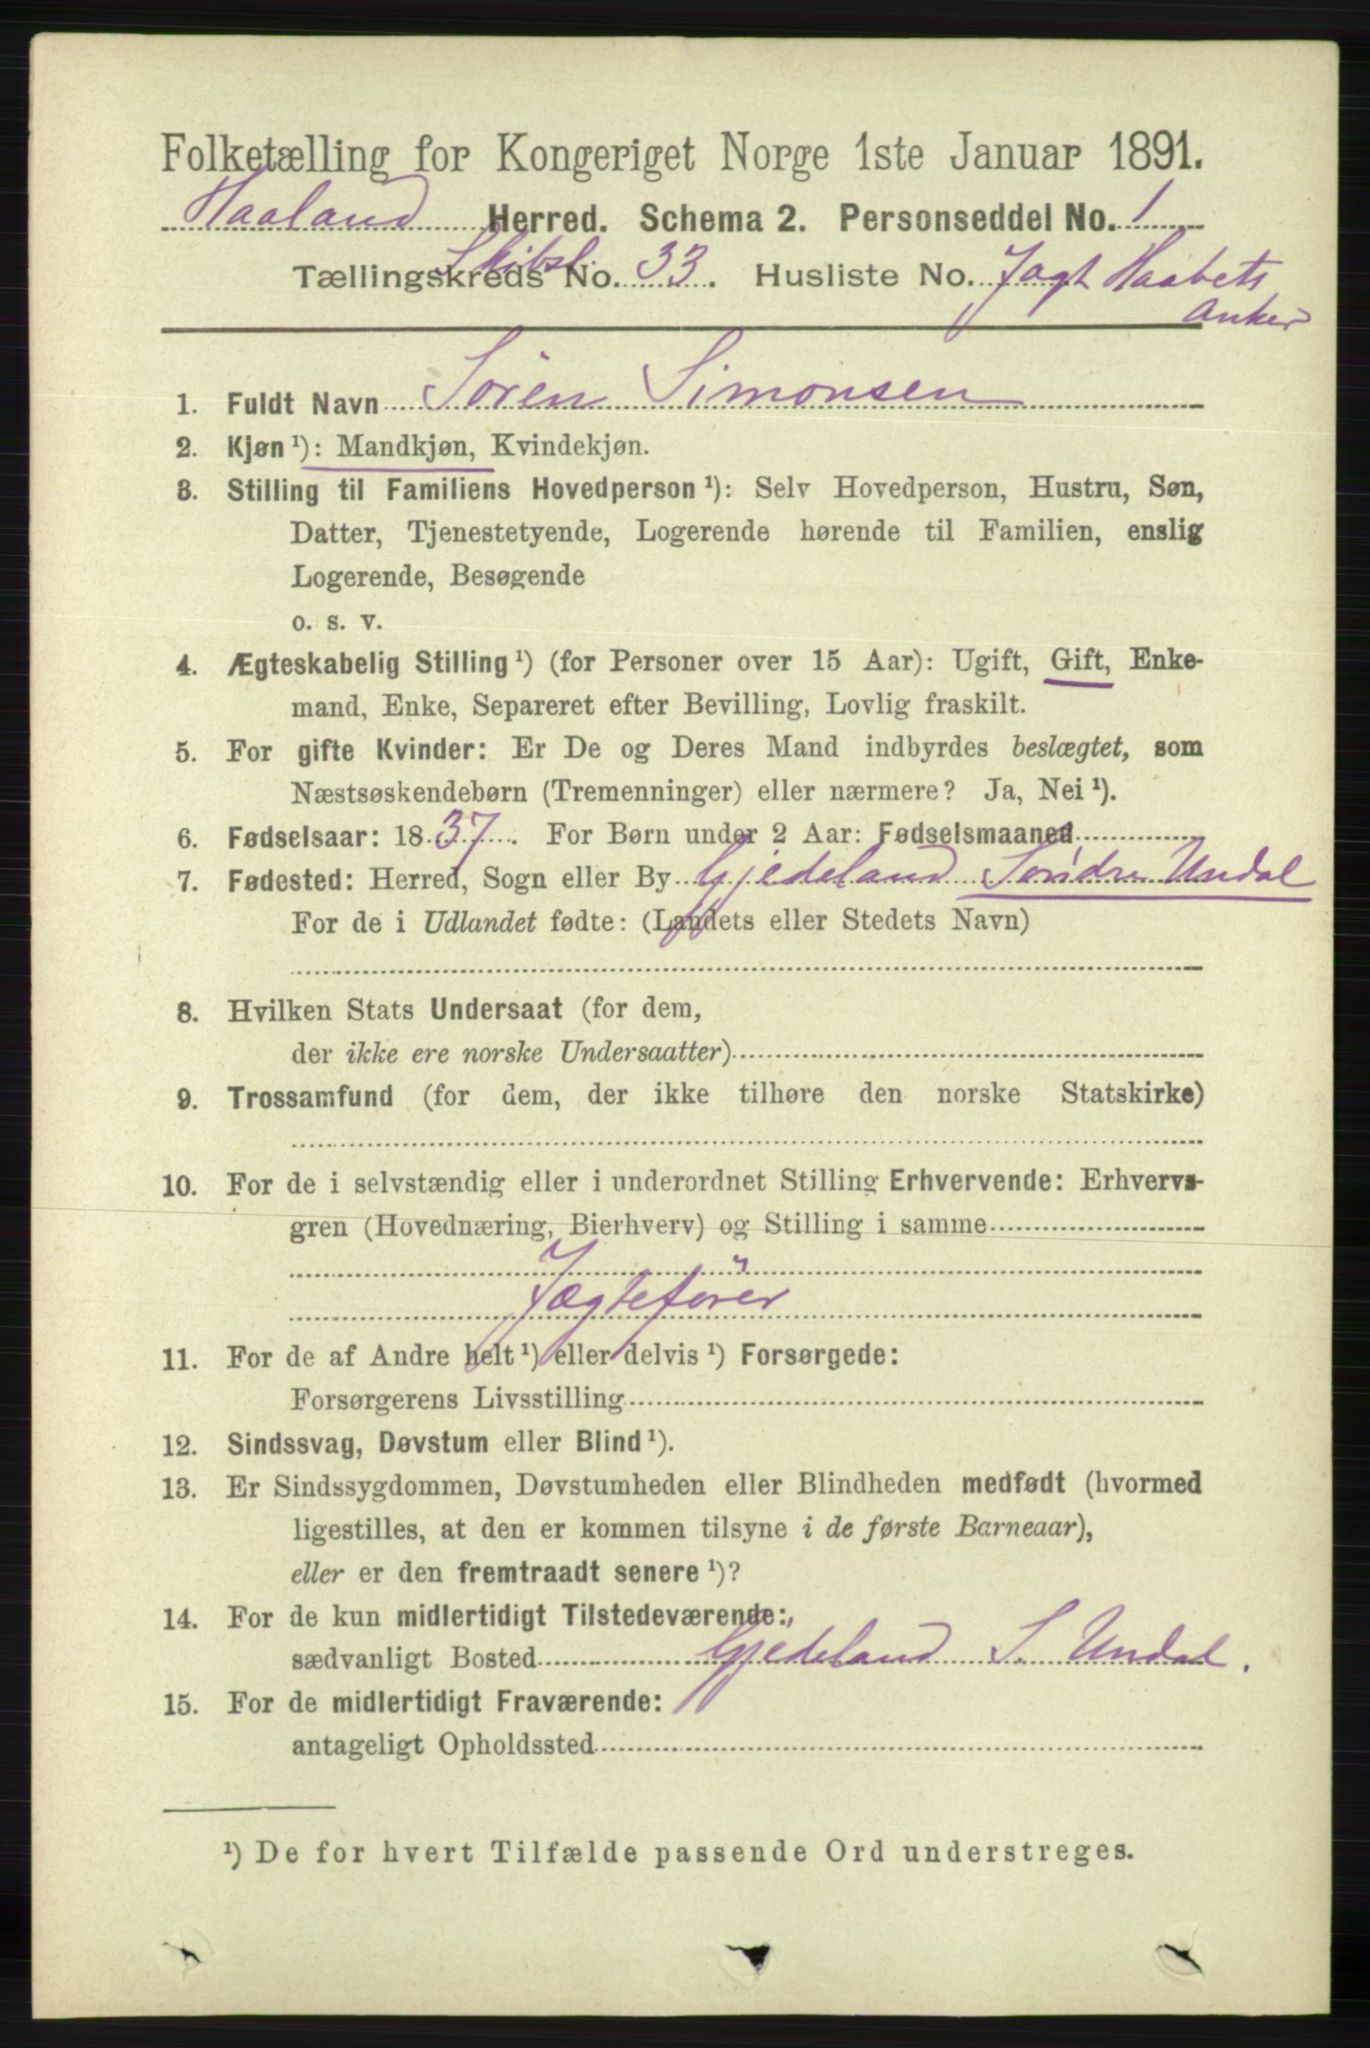 Folketælling for Kongeriget Norge 1ste Januar 1891.
Haaland Herred. Schema 2. Personseddel No. 1
Skibsl.
Tællingskreds No. 33. Husliste No. Jagt Haabets
Anker
1. Fuldt Navn Sören Simonsen
2. Kjøn ¹): Mandkjøn, Kvindekjøn.
3. Stilling til Familiens Hovedperson ¹): Selv Hovedperson, Hustru, Søn,
Datter, Tjenestetyende, Logerende hørende til Familien, enslig
Logerende, Besøgende
o. s. v.
4. Ægteskabelig Stilling ¹) (for Personer over 15 Aar): Ugift, Gift, Enke-
mand, Enke, Separeret efter Bevilling, Lovlig fraskilt.
5. For gifte Kvinder: Er De og Deres Mand indbyrdes beslægtet, som
Næstsøskendebørn (Tremenninger) eller nærmere? Ja, Nei ¹).
6. Fødselsaar: 1837. For Børn under 2 Aar: Fødselsmaaned
7. Fødested: Herred, Sogn eller By Gjedeland Söndre Undal
For de i Udlandet fødte: (Landets eller Stedets Navn)
8. Hvilken Stats Undersaat (for dem,
der ikke ere norske Undersaatter)
9. Trossamfund (for dem, der ikke tilhøre den norske Statskirke)
10. For de i selvstændig eller i underordnet Stilling Erhvervende: Erhvervs-
gren (Hovednæring, Bierhverv) og Stilling i samme
Jægtefører
11. For de af Andre helt ¹) eller delvis ¹) Forsørgede:
Forsørgerens Livsstilling
12. Sindssvag, Døvstum eller Blind ¹).
13. Er Sindssygdommen, Døvstumheden eller Blindheden medfødt (hvormed
ligestilles, at den er kommen tilsyne i de første Barneaar),
eller er den fremtraadt senere ¹)?
14. For de kun midlertidigt Tilstedeværende:
sædvanligt Bosted Gjedeland S. Undal.
15. For de midlertidigt Fraværende:
antageligt Opholdssted
¹) De for hvert Tilfælde passende Ord understreges.